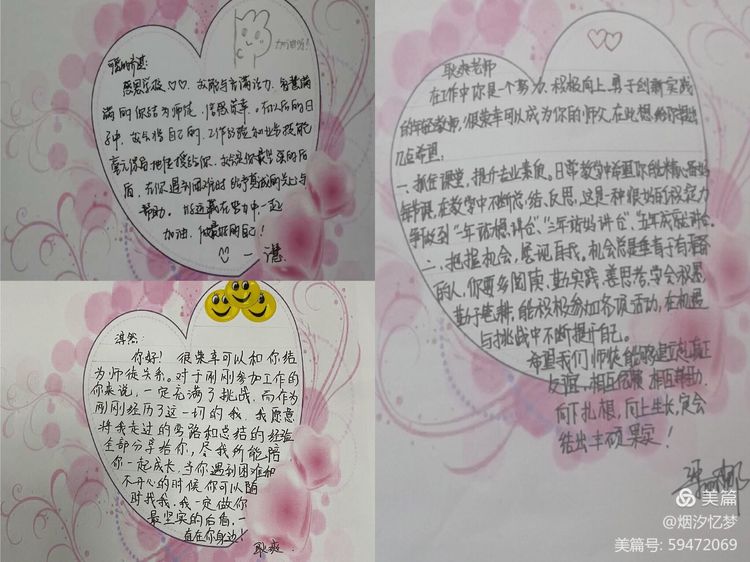 加油哦!
感恩学校♡♡,
满的你结为师徒,倍感荣幸。在以后的日
子中,
后盾,在你遇到困难时
帮助。
加油,做最好的自己!
淇然:
你好!很荣幸可以和你结
为师徒关系。对于刚刚参加工作的
你来说,一定充满了挑战,而作为
刚刚经历了这一切的我,我愿意
将我走过的弯路和总结的经验
全部分享给你,尽我所能陪
你一起成长,当你遇到困难和
不开心的时候,你可以随
时找我,我一定做你
最坚实的后盾,一
直在你身边!
耿爽
耿爽老师
在工作中你是一个努力、积极向上、勇于创新实践
的年轻教师,很荣幸可以成为你的师父,在此想给你提出
几点希望:
一、抓住课堂,提升专业素质。日常教学中希望你能精心备好
每节课,在教学中不断总结、反思,这是一种很好的积淀,力
争做到“一年站稳讲台”、“三年站好讲台”、
二、把握机会,展现自我。机会总是垂青于有准备
的人,你要多阅读、勤实践、善思考、学会积累,
勤于笔耕,能积极参加各项活动,在机遇
与挑战中不断提升自己。
希望我们师徒能够建立起真正
友谊,相互信赖、相互帮助,
向下扎根,向上生长,定会
结出丰硕果实!
美篇
@烟汐忆梦
美篇号: 59472069